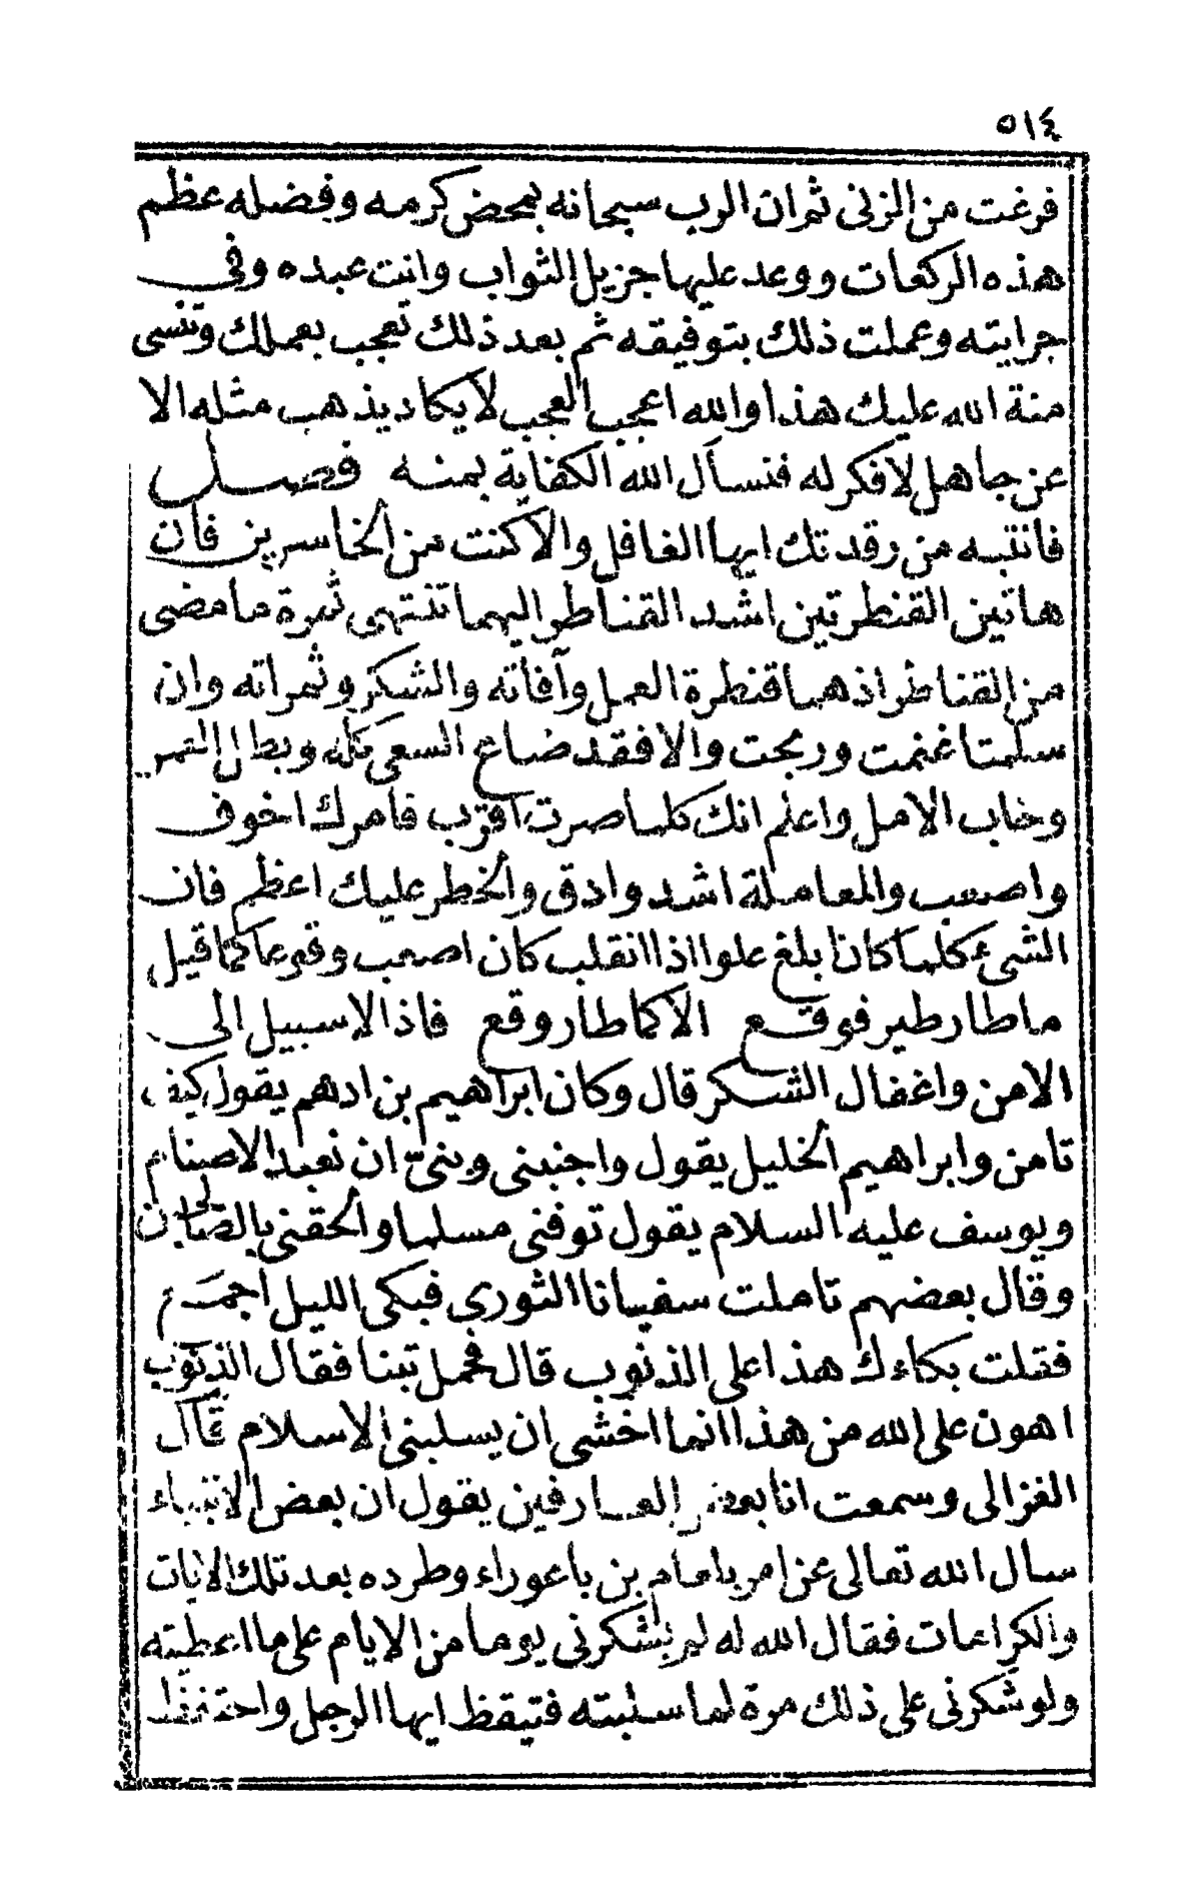 ٥١٤
فرغت من الزنى ثم ان الرب سبحانه بمحض كرمه وفضله عظم
هذه الركعات ووعد عليها جزيل الثواب وانت عبده وفى
جرايته وعملت ذلك بتوفيقه ثم بعد ذلك تعجب بعملك وتنسى
منة الله عليك هذا والله اعجب العجب لا يكاد يذهب مثله الا
عن جاهل لا فكر له فنسأل الله الكفاية بمنه فصل
فانتبه من رقدتك ايها الغافل والا كنت من الخاسرين فان
هاتين القنطرتين اشد القناطر اليهما تنتهى ثمرة ما مضى
من القناطر اذ هما قنطرة العمل وآفاته والشكر وثمراته وان
سلمتا غنمت وربحت والا فقد ضاع السعى كله وبطل الثمر
وخاب الامل واعلم انك كلما صرت اقرب فامرك اخوف
واصعب والمعاملة اشد وادق والخطر عليك اعظم فان
الشىء كلما كان ابلغ علوا اذا انقلب كان اصعب وقوعا كما قيل
ما طار طير فوقع الا كما طار وقع فاذا لا سبيل الى
الامن واغفال الشكر قال وكان ابراهيم بن ادهم يقول كيف
تامن وابراهيم الخليل يقول واجنبنى وبنىّ ان نعبد الاصنام
ويوسف عليه السلام يقول توفنى مسلما والحقنى بالصالحين
وقال بعضهم تاملت سفيانا الثورى فبكى الليل اجمع
فقلت بكاءك هذا على الذنوب قال فحمل تبنا فقال الذنوب
اهون على الله من هذا انما اخشى ان يسلبنى الاسلام قال
الغزالى وسمعت انا بعض العارفين يقول ان بعض الانبياء
سال الله تعالى عن امر بلعام بن باعوراء وطرده بعد تلك الايات
والكرامات فقال الله له لم يشكرنى يوما من الايام على ما اعطيته
ولو شكرنى على ذلك مرة لما سلبته فتيقظ ايها الرجل واحتفظ